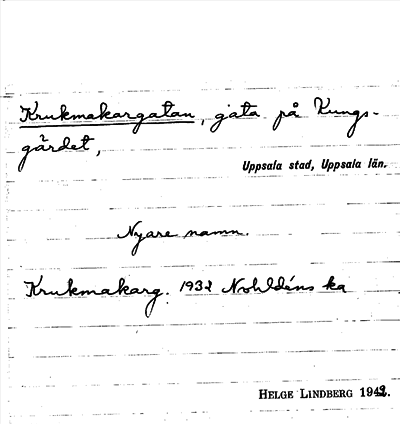 Krukmakargatan, gata på Kungs-
gärdet,
Uppsala stad, Uppsala län.
Nyare namn.
Krukmakarg. 1932 Nohldéns ka
HELGE LINDBERG 1942.